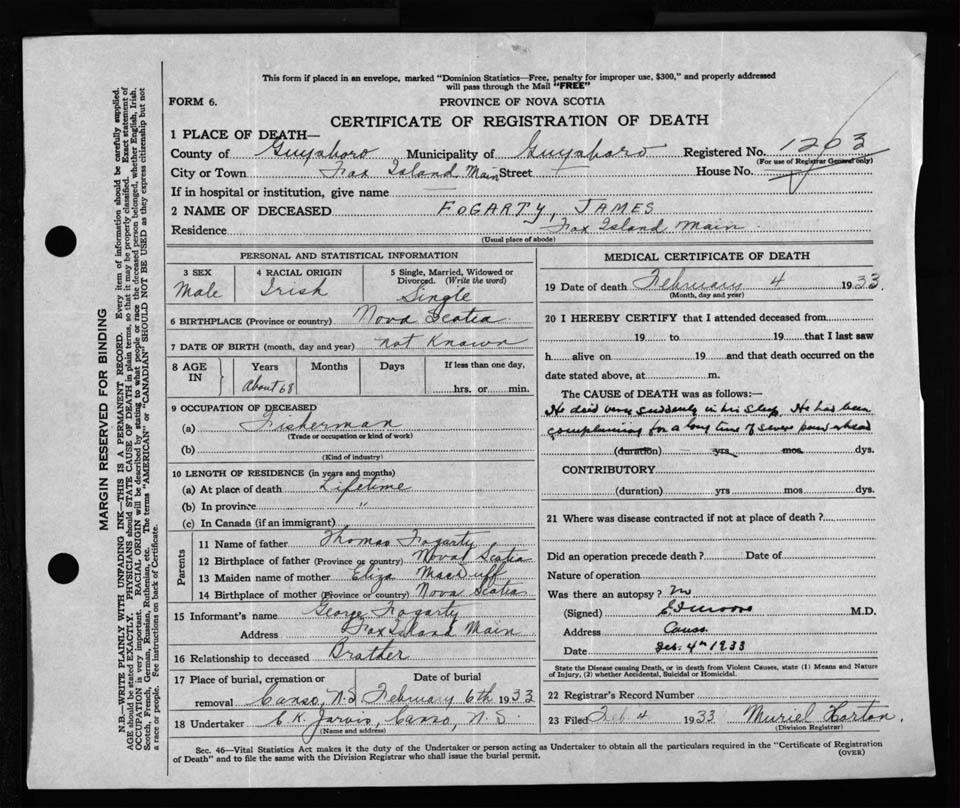 This form if placed in an envelope, marked "Dominion Statistics—Free, penalty for improper use, $300," and properly addressed
will pass through the Mail "FREE"
FORM 6.
PROVINCE OF NOVA SCOTIA
CERTIFICATE OF REGISTRATION OF DEATH
1 PLACE OF DEATH—
County of Guysboro Municipality of Guysboro Registered No. 1203
(For use of Registrar General only)
City or Town Fox Island Main Street House No.
If in hospital or institution, give name
2 NAME OF DECEASED FOGARTY, JAMES
Residence Fox Island Main
(Usual place of abode)
PERSONAL AND STATISTICAL INFORMATION
3 SEX Male
4 RACIAL ORIGIN Irish
5 Single, Married, Widowed or Divorced. (Write the word) Single
6 BIRTHPLACE (Province or country) Nova Scotia
7 DATE OF BIRTH (month, day and year) not Known
8 AGE IN Years Months Days If less than one day,
About 68 hrs. or min.
9 OCCUPATION OF DECEASED
(a) Fisherman
(Trade or occupation or kind of work)
(b)
(Kind of industry)
10 LENGTH OF RESIDENCE (in years and months)
(a) At place of death Lifetime
(b) In province "
(c) In Canada (if an immigrant)
Parents
11 Name of father Thomas Fogarty
12 Birthplace of father (Province or country) Nova Scotia
13 Maiden name of mother Eliza MacDuff
14 Birthplace of mother (Province or country) Nova Scotia
15 Informant's name George Fogarty
Address Fox Island Main
16 Relationship to deceased Brother
17 Place of burial, cremation or removal Canso, N.S. Date of burial February 6th 1933
18 Undertaker C. K. Jarvis, Canso, N.S.
(Name and address)
MEDICAL CERTIFICATE OF DEATH
19 Date of death February 4 1933.
(Month, day and year)
20 I HEREBY CERTIFY that I attended deceased from
19 to 19 that I last saw
h alive on 19 and that death occurred on the
date stated above, at m.
The CAUSE of DEATH was as follows:—
He died very suddenly in his sleep. He had been
complaining for a long time of severe pain
(duration) yrs mos dys.
CONTRIBUTORY
(duration) yrs mos dys.
21 Where was disease contracted if not at place of death?
Did an operation precede death? Date of
Nature of operation
Was there an autopsy? No
(Signed) M.D.
Address Canso
Date Feb. 4th 1933
State the Disease causing Death, or in death from Violent Causes, state (1) Means and Nature
of Injury, (2) whether Accidental, Suicidal or Homicidal.
22 Registrar's Record Number
23 Filed Feb 4 1933 Muriel Horton.
(Division Registrar)
Sec. 46—Vital Statistics Act makes it the duty of the Undertaker or person acting as Undertaker to obtain all the particulars required in the "Certificate of Registration
of Death" and to file the same with the Division Registrar who shall issue the burial permit.
(OVER)
MARGIN RESERVED FOR BINDING
N.B.—WRITE PLAINLY WITH UNFADING INK—THIS IS A PERMANENT RECORD. Every item of information should be carefully supplied.
AGE should be stated EXACTLY. PHYSICIANS should STATE CAUSE OF DEATH in plain terms, so that it may be properly classified. Exact statement of
OCCUPATION is very important. RACIAL ORIGIN will be described by stating to what people or race the deceased person belonged, whether English, Irish,
Scotch, French, German, Russian, Ruthenian, etc. The terms "AMERICAN" or "CANADIAN" SHOULD NOT BE USED as they express citizenship but not
a race or people. See instructions on back of Certificate.